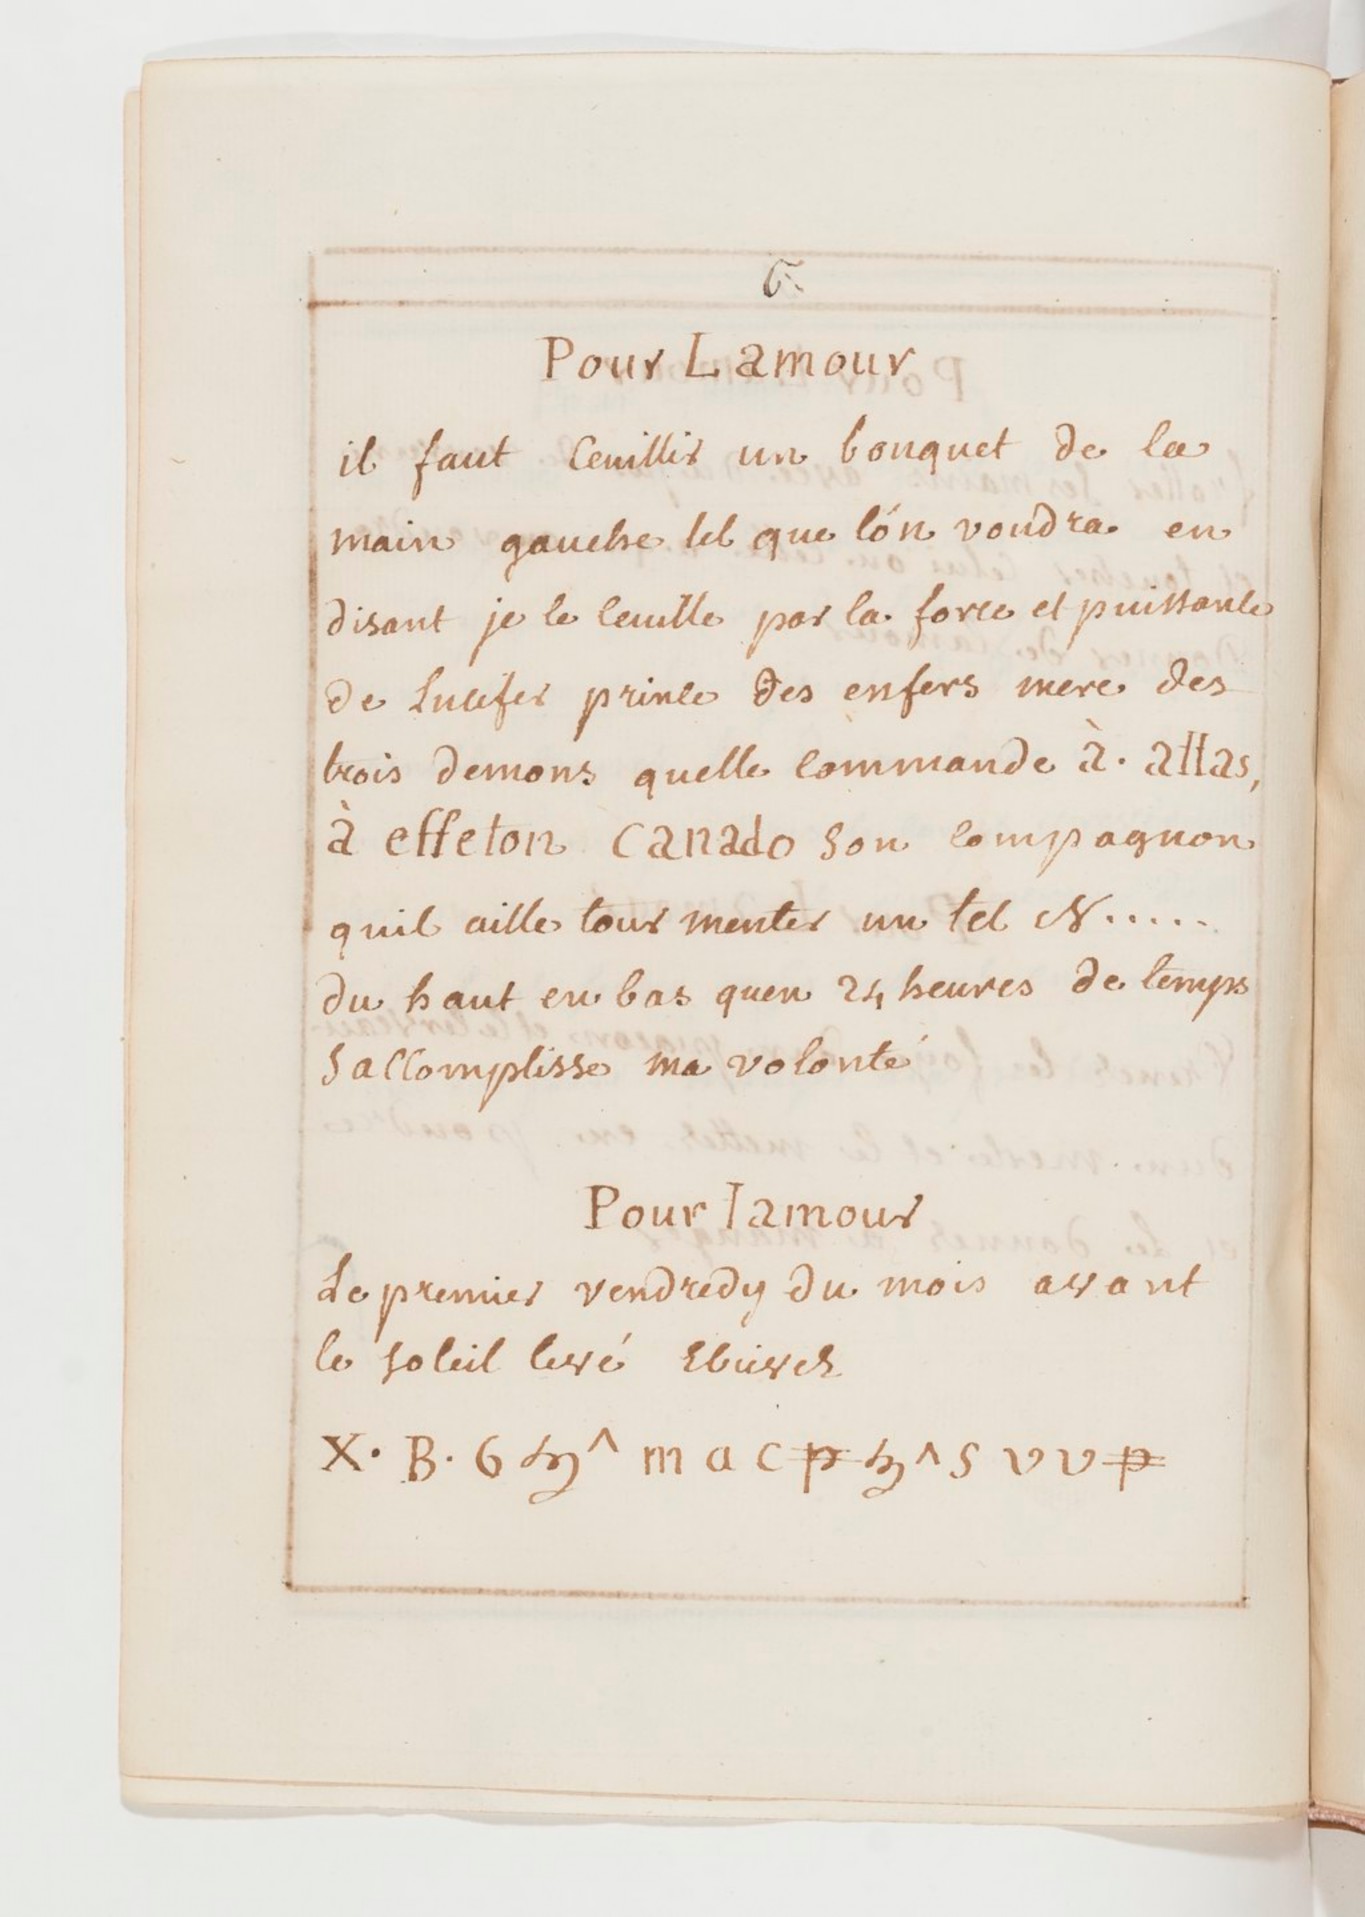 6.
Pour Lamour
il faut Ceuillir un bouquet de la
main gauche tel que lón voudra en
disant je le ceuille par la force et puissance
de Lucifer prince des enfers mere des
trois demons quelle commande à. attas,
à effeton Canado son compagnon
quil aille tour menter un tel N.....
du haut en bas quen 24 heures de temps
saccomplisse ma volonté
Pour lamour
Le premier vendredy du mois avant
le soleil levé
X. B. 6 ^ m a c p ^ s v v p